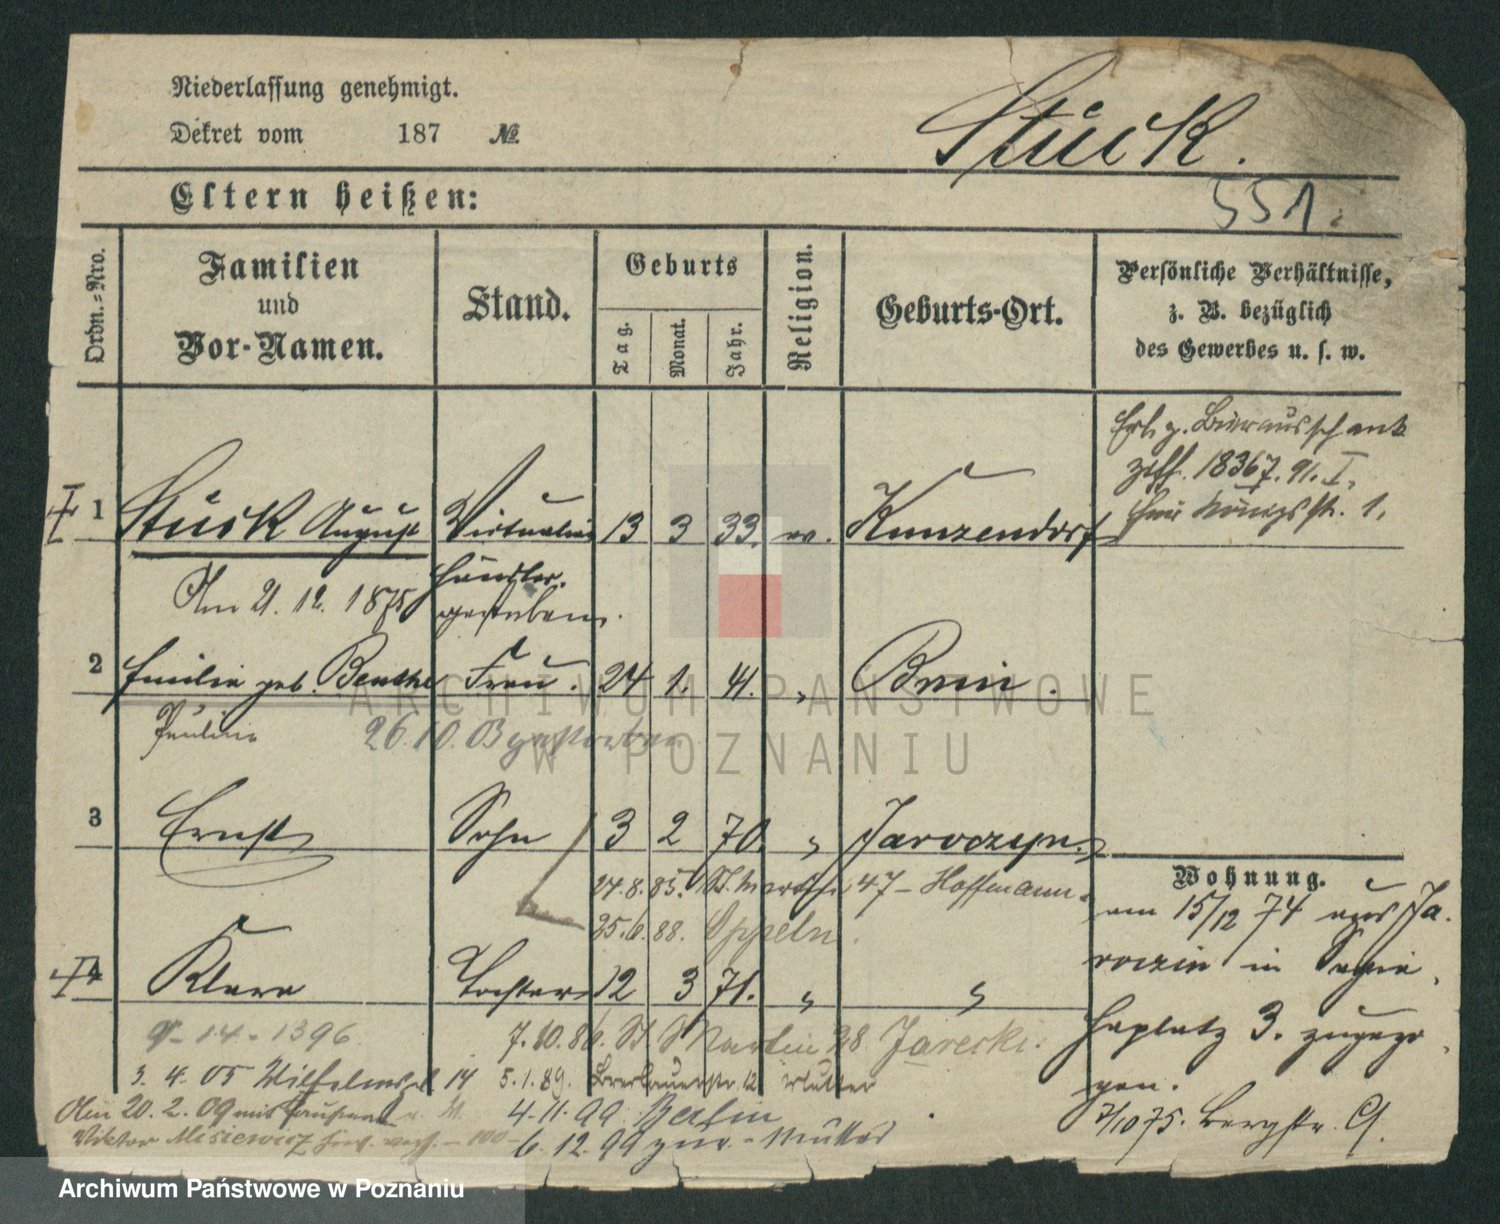 Niederlassung genehmigt.
Dekret vom 187 №
Stück.
551.
Eltern heißen:
Ordn.=Nro.
Familien
und
Vor-Namen.
Stand.
Geburts
Tag.
Monat.
Jahr.
Religion.
Geburts-Ort.
Persönliche Verhältnisse,
z. B. bezüglich
des Gewerbes u. s. w.
Bierausschank
18367. 91. I.
Königsstr. 1.
1 Stück August Victualien 13 3 33. ev. Kunzendorf
händler.
Am 21. 12. 1875 gestorben.
2 Emilie geb. Frau. 24 1. 41. " Bnin.
Pauline 26.10. gestorben
3 Ernst Sohn 3 2 70. " Jaroczyn.
24.8.85. St. Martin 47 - Hoffmann.
25.6.88. Oppeln.
4 Klara Tochter 12 3 71. " "
14 - 1396
7.10.86. St. Martin 28 Jarecki.
3. 4. 05 Wilhelmspl 14 5.1.89. Breslauerstr. 12 Mutter
20. 2. 09 mit 4.11.99 Berlin
Viktor Misiewicz 6.12.99 zur. - Mutter
Wohnung.
am 15/12 74 aus Ja-
roczin in Sapie-
haplatz 3. zugezo-
gen.
7/10 75. Bergstr. 9.
ARCHIWUM PAŃSTWOWE
W POZNANIU
Archiwum Państwowe w Poznaniu